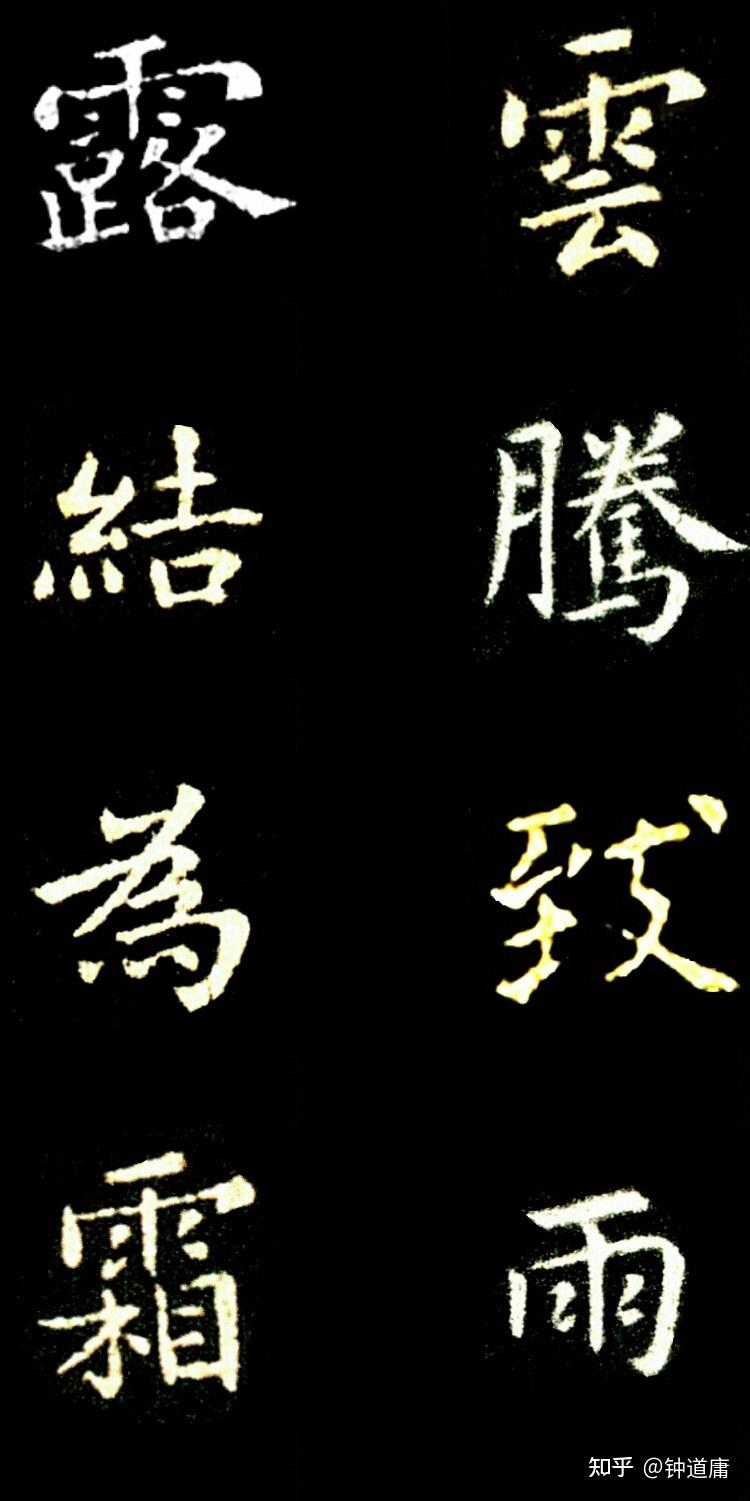 雲騰致雨
露結為霜
知乎 @钟道庸